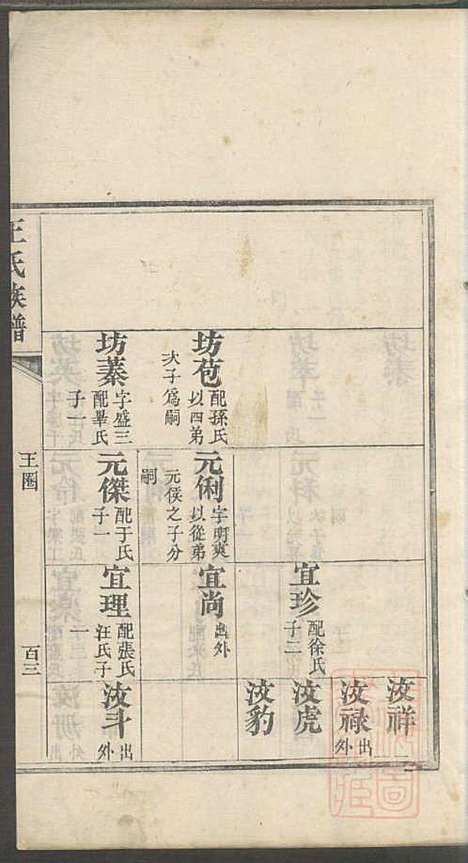 汝祥
汝祿 出外
汝虎
汝豹
宜珍 配徐氏子二
宜尚 出外
坊苞 配孫氏以四弟次子爲嗣
元俐 字明爽以從弟元倓之子分嗣
坊蓁 字盛三配畢氏子一
元傑 配于氏子一
宜理 配張氏汪氏子一
汝斗 出外
王氏族譜
王圈
百三